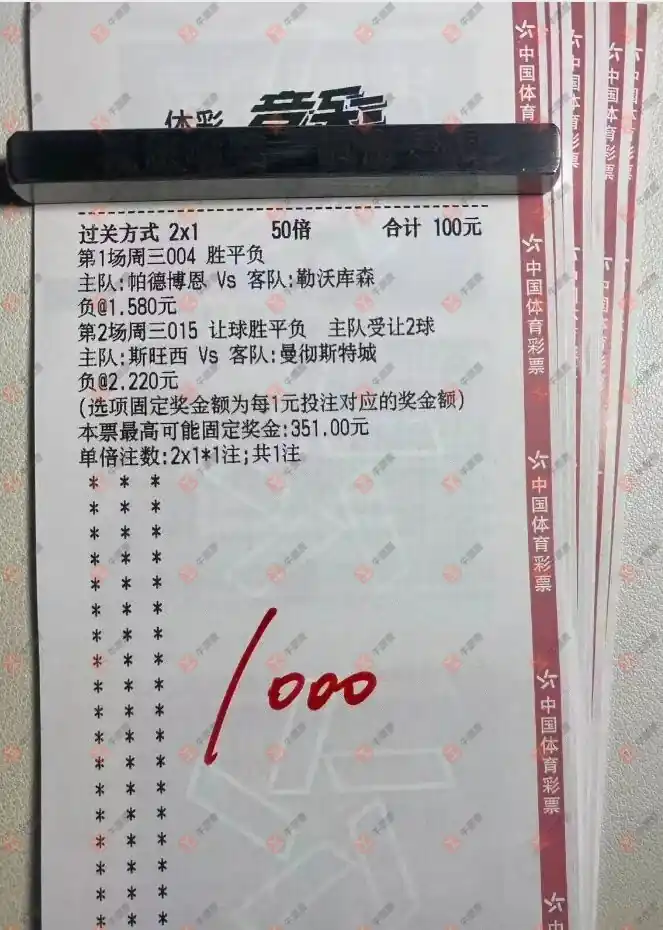 体彩 竞彩
过关方式 2x1 50倍 合计 100元
第1场周三004 胜平负
主队:帕德博恩 Vs 客队:勒沃库森
负@1.580元
第2场周三015 让球胜平负 主队受让2球
主队:斯旺西 Vs 客队:曼彻斯特城
负@2.220元
(选项固定奖金额为每1元投注对应的奖金额)
本票最高可能固定奖金:351.00元
单倍注数:2x1*1注;共1注
* * *
* * *
* * *
* * *
* * *
* * *
* * *
* * *
* * *
* * *
* * *
* * *
* * *
* * *
* * *
* * *
* * *
* * *
1000
中国体育
中国体育彩票
中国体育彩票
中国体育彩票
中